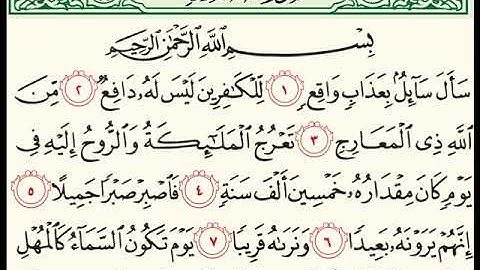 بِسْمِ ٱللَّهِ ٱلرَّحْمَٰنِ ٱلرَّحِيمِ
سَأَلَ سَآئِلُۢ بِعَذَابٖ وَاقِعٖ ١ لِّلۡكَٰفِرِينَ لَيۡسَ لَهُۥ دَافِعٞ ٢ مِّنَ
ٱللَّهِ ذِي ٱلۡمَعَارِجِ ٣ تَعۡرُجُ ٱلۡمَلَٰٓئِكَةُ وَٱلرُّوحُ إِلَيۡهِ فِي
يَوۡمٖ كَانَ مِقۡدَارُهُۥ خَمۡسِينَ أَلۡفَ سَنَةٖ ٤ فَٱصۡبِرۡ صَبۡرٗا جَمِيلًا ٥
إِنَّهُمۡ يَرَوۡنَهُۥ بَعِيدٗا ٦ وَنَرَىٰهُ قَرِيبٗا ٧ يَوۡمَ تَكُونُ ٱلسَّمَآءُ كَٱلۡمُهۡلِ